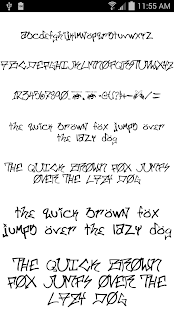 11:55 AM
abcdefghijklmnopqrstuvwxyz
ABCDEFGHIJKLMNOPQRSTUVWXYZ
the quick brown fox jumps over
the lazy dog
THE QUICK BROWN FOX JUMPS
OVER THE LAZY DOG
the quick brown fox
jumps over the lazy dog
THE QUICK BROWN
FOX JUMPS OVER THE
LAZY DOG